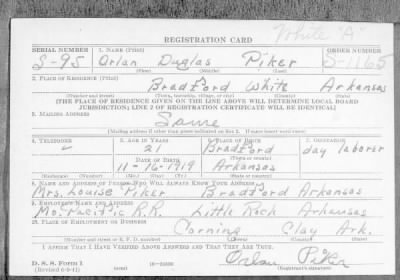 White "A"
REGISTRATION CARD
SERIAL NUMBER 1. NAME (Print) ORDER NUMBER
S-95 Orlan Duglas Piker S-1165
(First) (Middle) (Last)
2. PLACE OF RESIDENCE (Print)
Bradford White Arkansas
(Number and street) (Town, township, village, or city) (County) (State)
[THE PLACE OF RESIDENCE GIVEN ON THE LINE ABOVE WILL DETERMINE LOCAL BOARD
JURISDICTION; LINE 2 OF REGISTRATION CERTIFICATE WILL BE IDENTICAL]
3. MAILING ADDRESS
Same
[Mailing address if other than place indicated on line 2. If same insert word same]
4. TELEPHONE 5. AGE IN YEARS 6. PLACE OF BIRTH 7. OCCUPATION
21 Bradford day laborer
DATE OF BIRTH (Town or county)
11-16-1919 Arkansas
(Mo.) (Day) (Yr.) (State or country)
8. NAME AND ADDRESS OF PERSON WHO WILL ALWAYS KNOW YOUR ADDRESS
Mrs. Louise Piker Bradford Arkansas
9. EMPLOYER'S NAME AND ADDRESS
Mo. Pacific R.R. Little Rock Arkansas
10. PLACE OF EMPLOYMENT OR BUSINESS
Corning Clay Ark.
(Number and street or R. F. D. number) (Town) (County) (State)
I AFFIRM THAT I HAVE VERIFIED ABOVE ANSWERS AND THAT THEY ARE TRUE.
D. S. S. Form 1 Orlan Piker
(Revised 6-9-41) (over) (Registrant's signature)